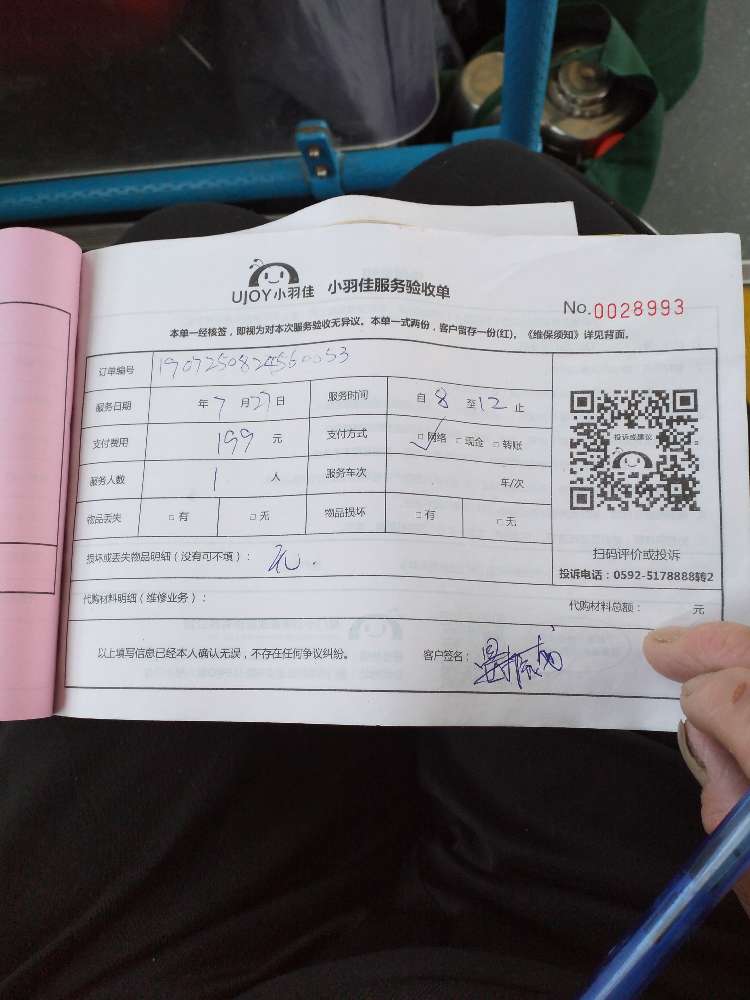 UJOY小羽佳 小羽佳服务验收单
No.0028993
本单一经核签，即视为对本次服务验收无异议。本单一式两份，客户留存一份(红)。《维保须知》详见背面。
订单编号 1907250824560053
服务日期 年7月27日 服务时间 自8至12止
支付费用 199元 支付方式 □网络 □现金 □转账
服务人数 1 人 服务车次 年/次
物品丢失 □有 □无 物品损坏 □有 □无
投诉或建议
扫码评价或投诉
投诉电话：0592-5178888转2
损坏或丢失物品明细（没有可不填）：无.
代购材料明细（维修业务）： 代购材料总额： 元
以上填写信息已经本人确认无误，不存在任何争议纠纷。 客户签名：